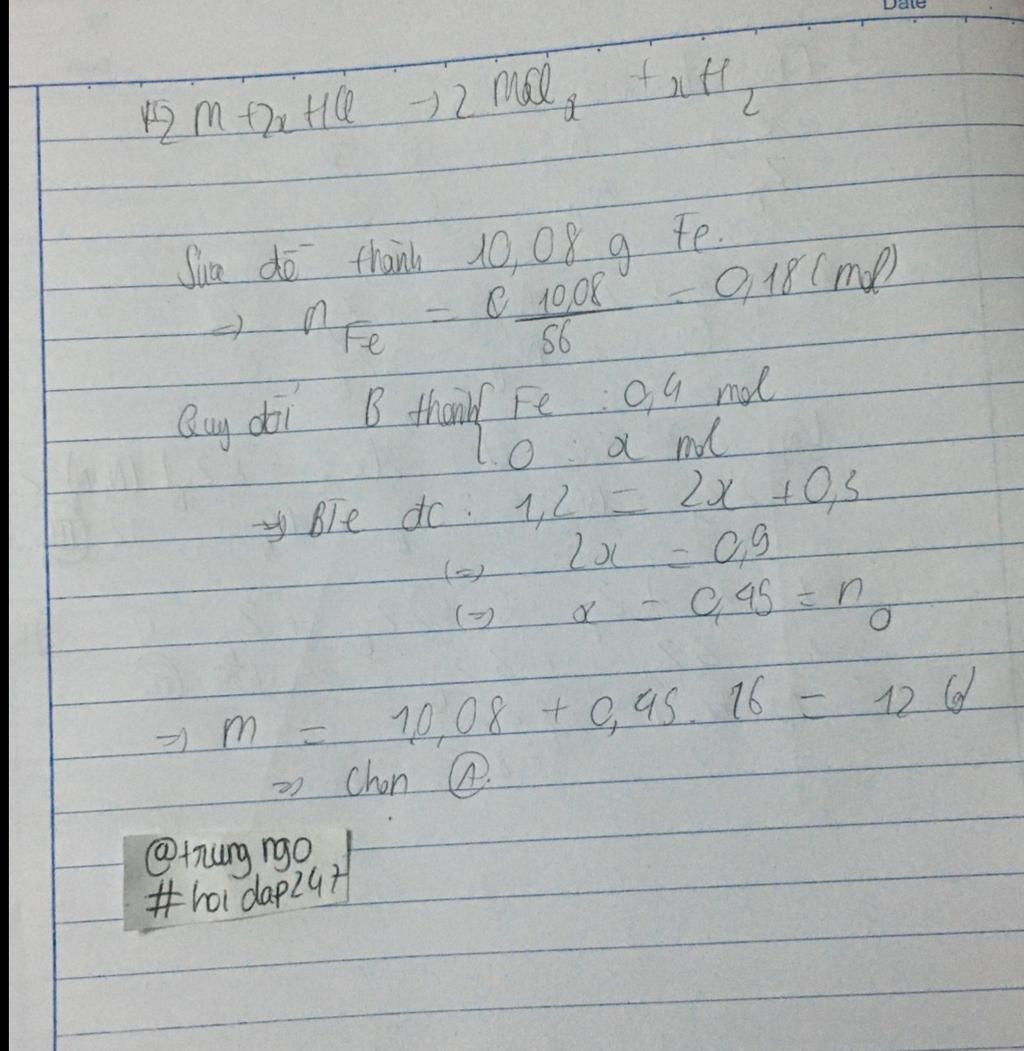 Date
2 M + 2x HCl → 2 MClx + xH2
Sửa đề thành 10,08 g Fe.
=> nFe = 10,08/56 = 0,18 (mol)
Quy đổi B thành { Fe : 0,4 mol
O : x mol
=> BTe dc : 1,2 = 2x + 0,3
(=) 2x = 0,9
(=) x = 0,45 = nO
=> m = 10,08 + 0,45. 16 =
=> Chọn (A).
@trung ngo
#hoi dap247